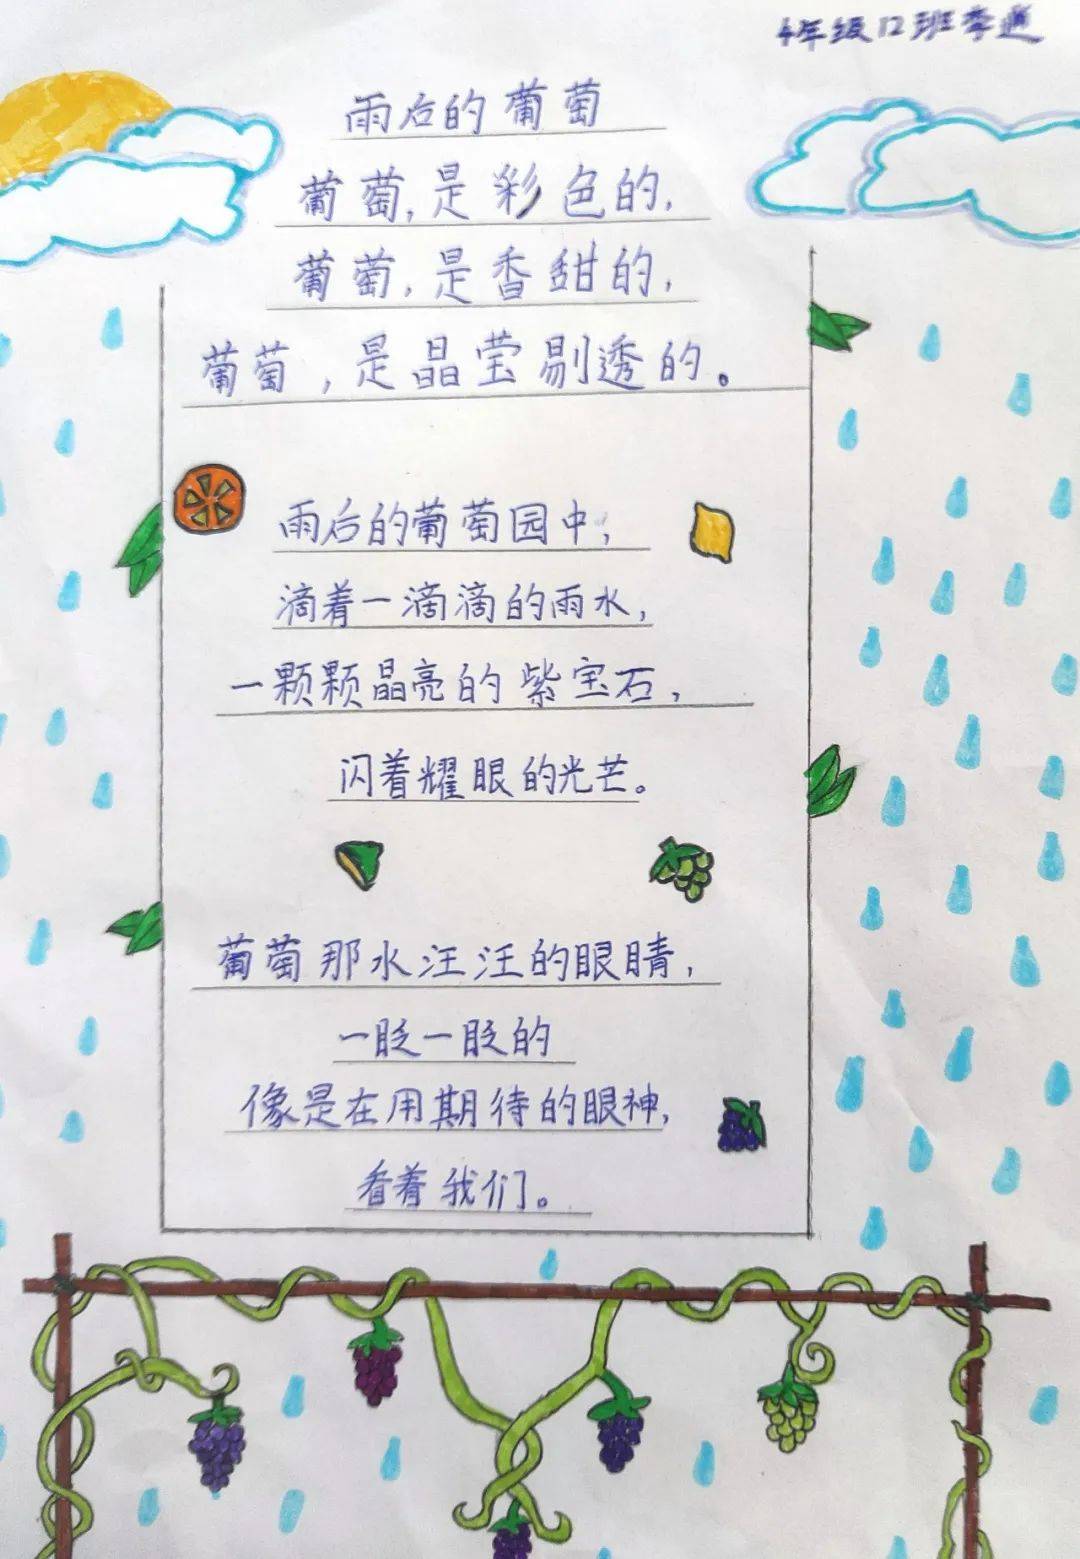 4年级12班李
雨后的葡萄
葡萄,是彩色的,
葡萄,是香甜的,
葡萄,是晶莹剔透的。
雨后的葡萄园中,
滴着一滴滴的雨水,
一颗颗晶亮的紫宝石,
闪着耀眼的光芒。
葡萄那水汪汪的眼睛,
一眨一眨的
像是在用期待的眼神,
看着我们。